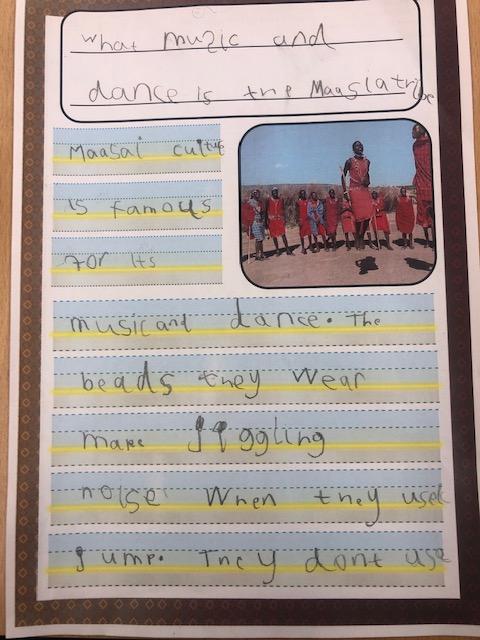 What muzic and
dance is the Maasiatribe
Maasai cultue
is famous
for its
music and dance. The
beads they wear
make jiggling
noise When they used
jump. They dont use